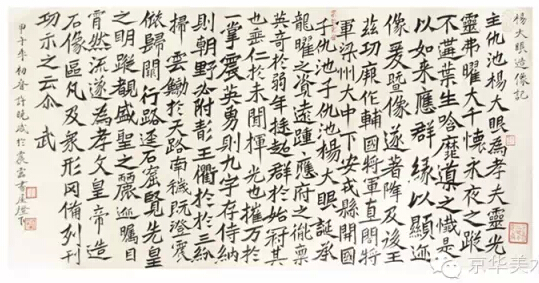 楊大眼造像記
主仇池楊大眼為孝夫靈光
靈弗曜大千懷永夜之蹤
不遘葉生唅靡導之懺是
以如來應群緣以顯迹
像爰暨像遂著降及後王
茲功厥作輔國將軍直閤將
軍梁州大中下安戎縣開國
子仇池子仇池楊大眼誕承
龍曜之資遠踵應符之胤稟
英奇於弱年挺超群於始冠其
也垂仁於未聞揮光也摧万於
掌震英勇則九宇存侍納
則朝野必附彰王衢於於三紛
掃雲鯨於天路南穢既澄震
依歸闕行路逕石窟覽先皇
之明蹤覩盛聖之麗迹矚目
霄然流遂為孝文皇帝造
石像區凡及衆形罔備列刊
功示之云尒 武
甲午年初春許曉於震雲書屋燈下
京华美